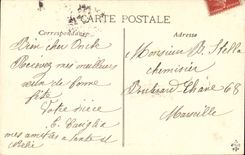 CARTE POSTALE
Correspondance
Adresse
Bien cher Oncle
Recevez mes meilleurs
vœux de bonne
fête
Votre nièce
mes amitiés à Tante et
Monsieur N. Stella
chemisier
Boulevard 68
Marseille